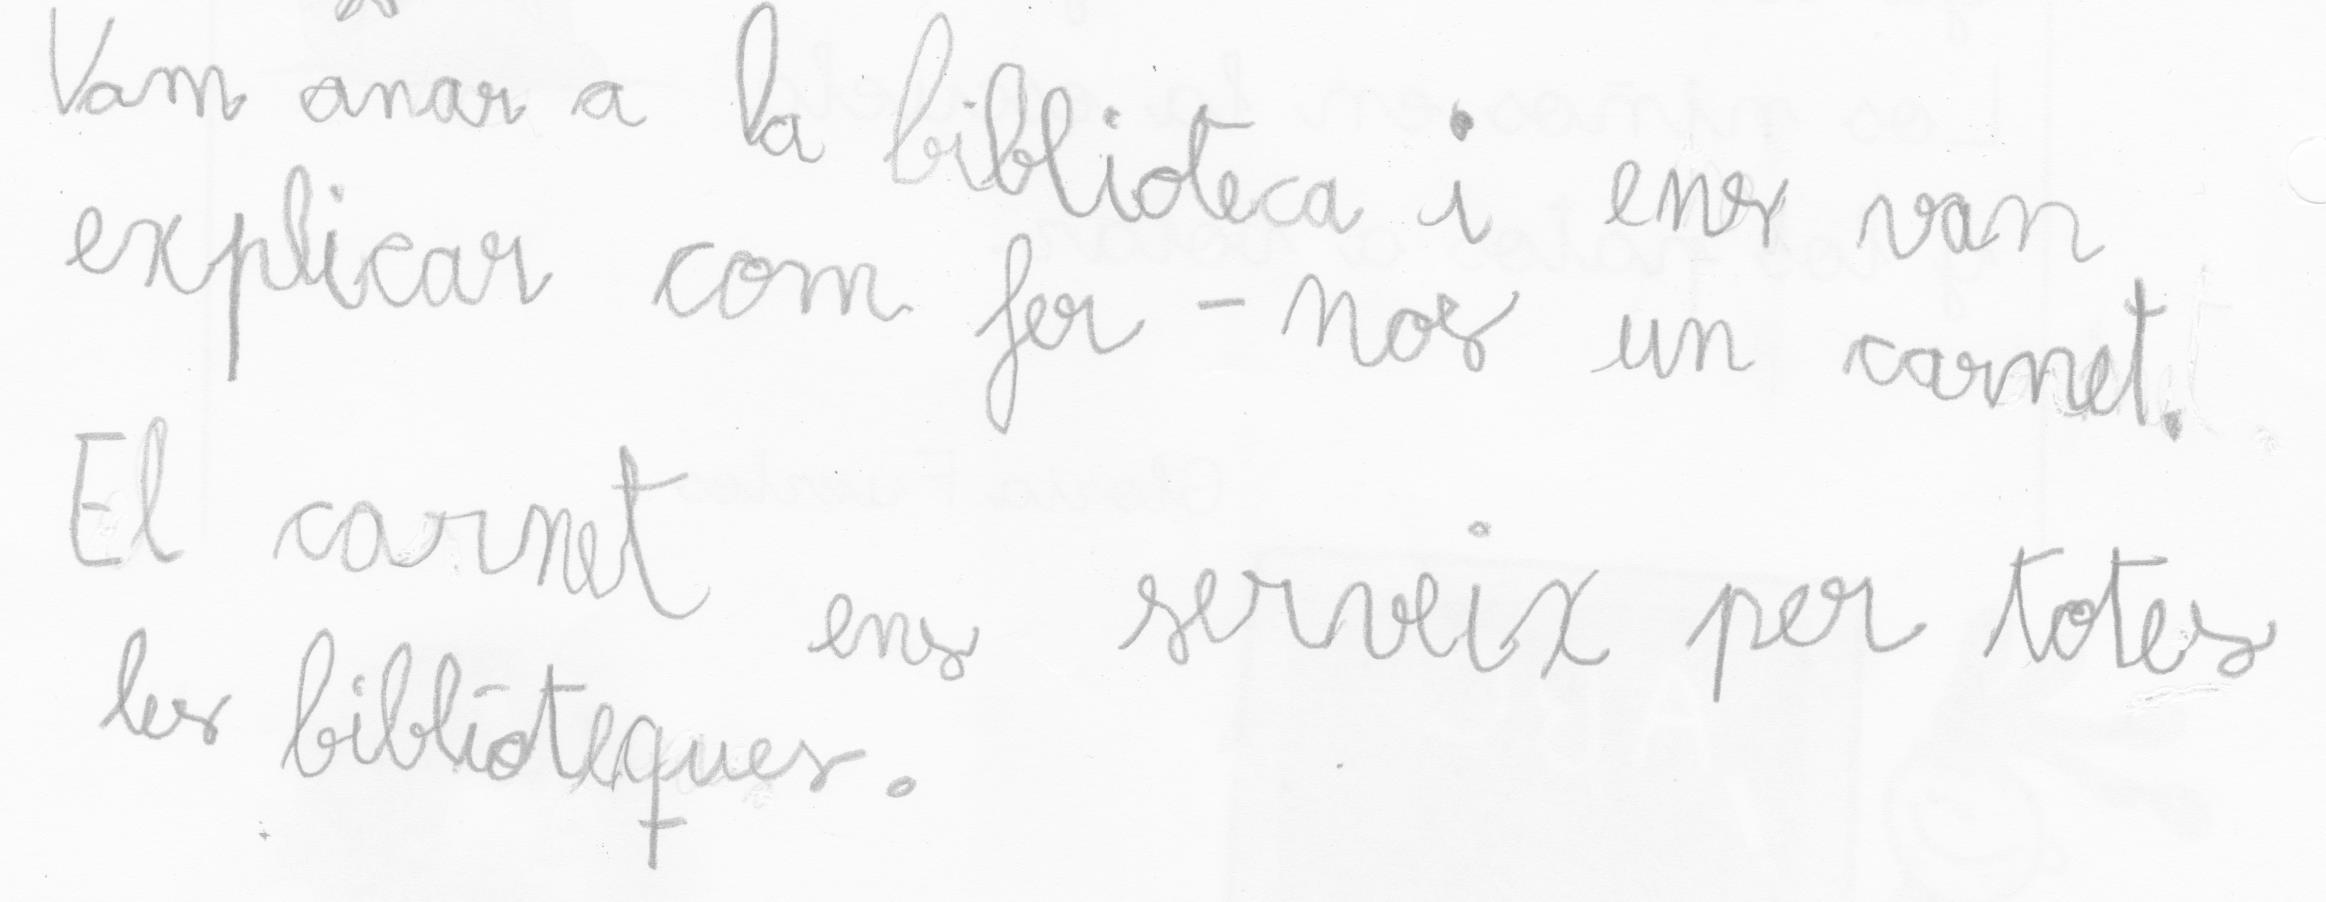 Vam anar a la biblioteca i ens van
explicar com fer-nos un carnet.
El carnet ens serveix per totes
les biblioteques.